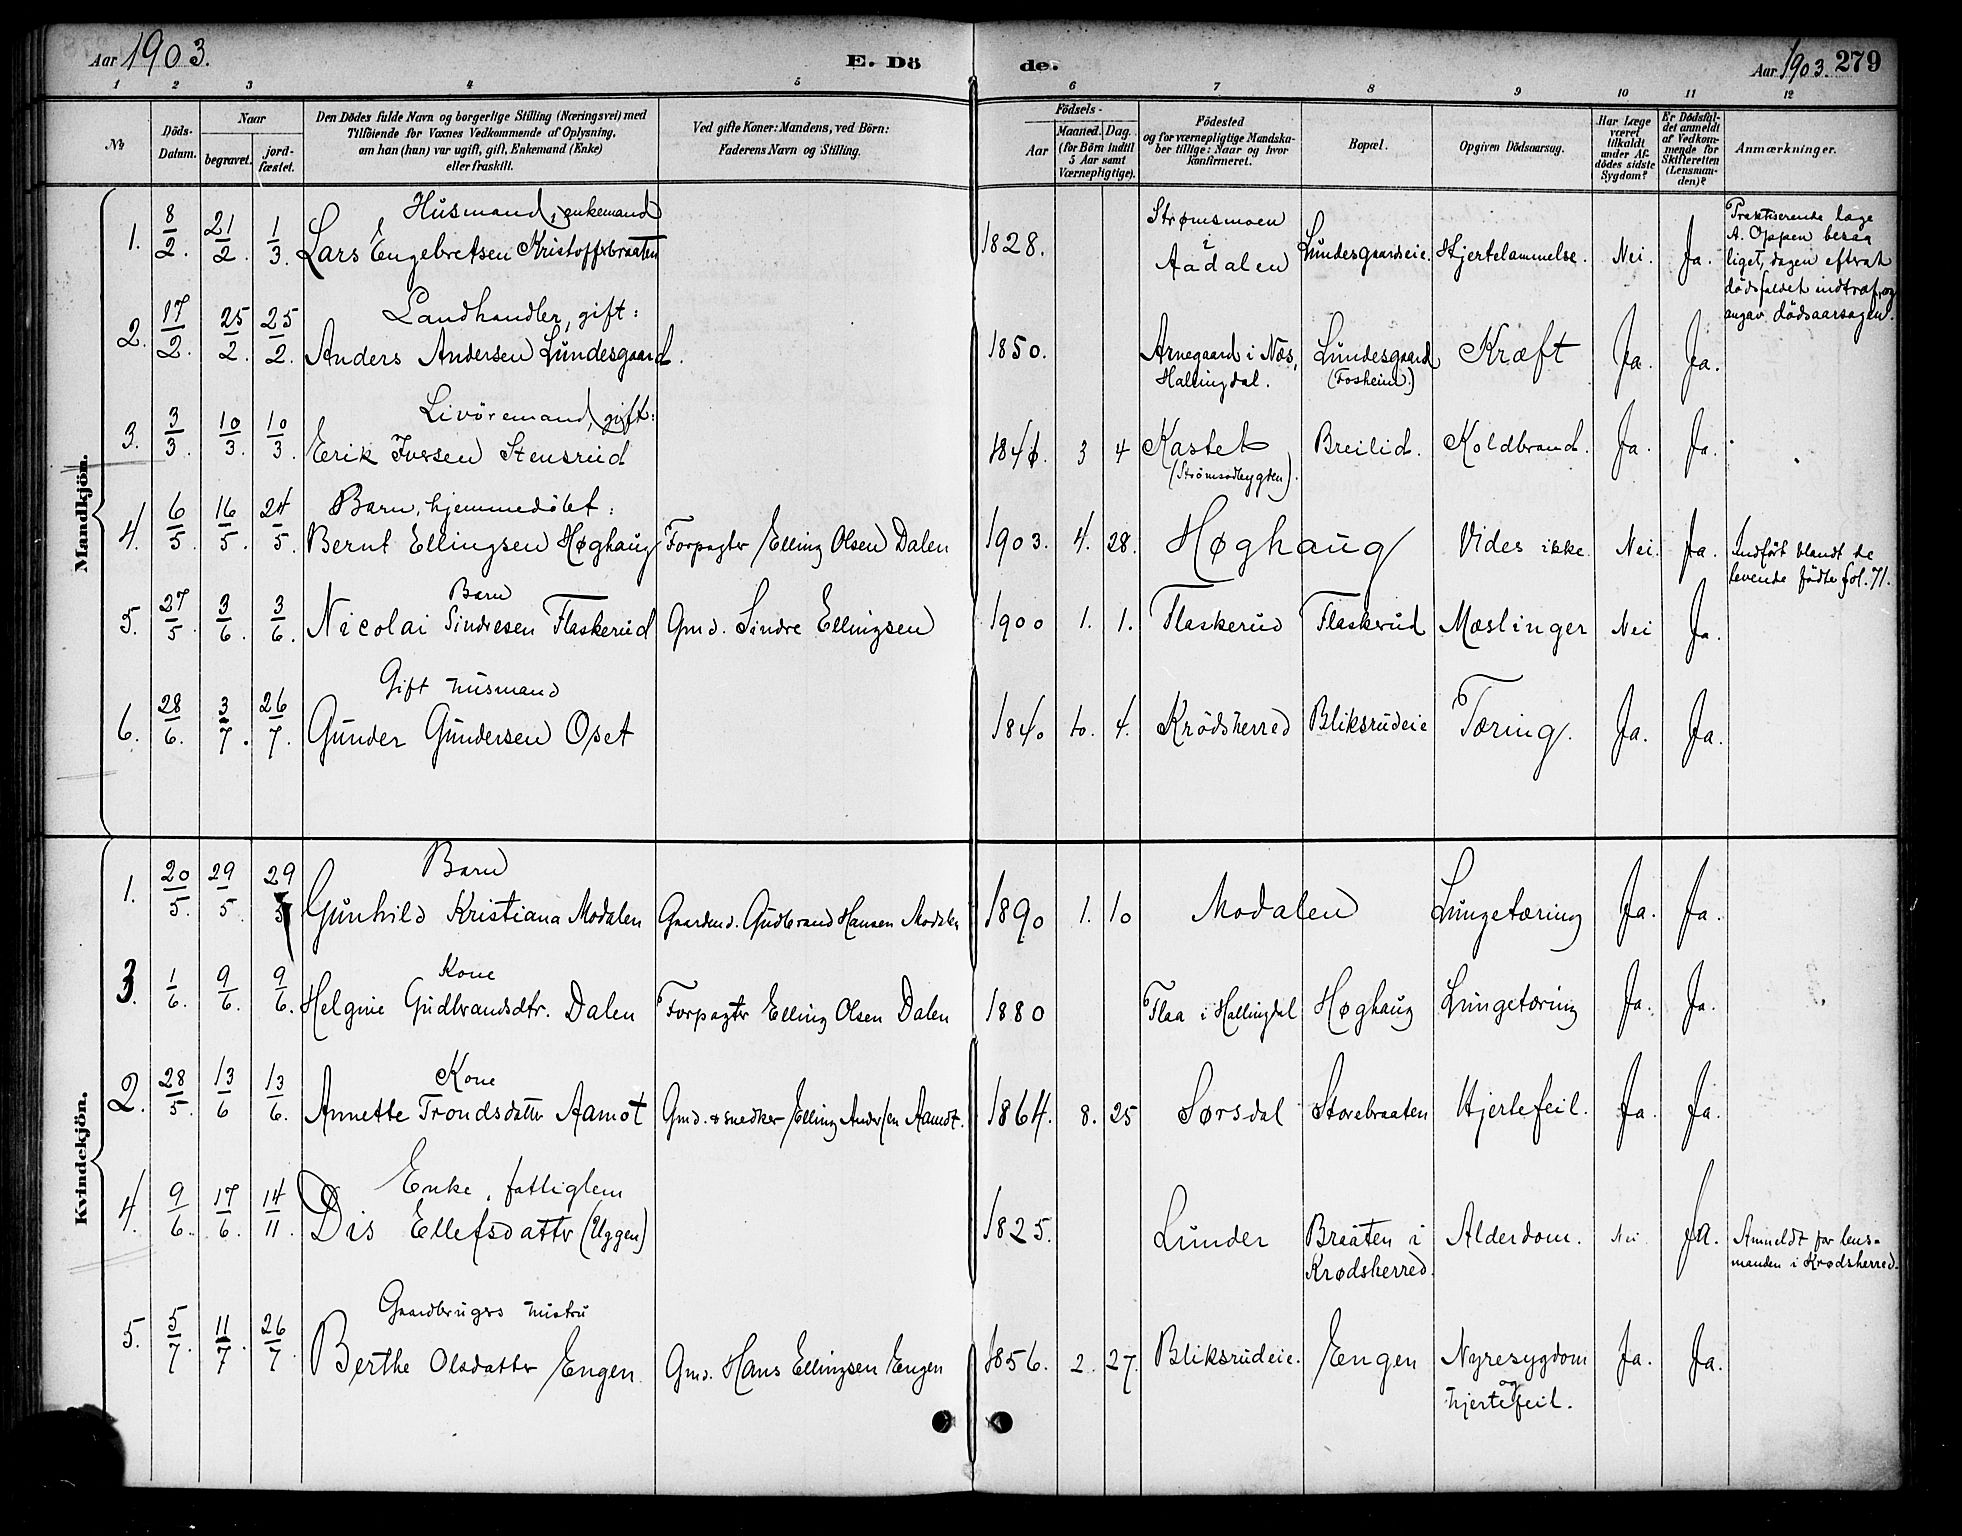 Aar 1903.
E. Dö
de.
Aar 1903. 279
1 2 3 4 5 6 7 8 9 10 11 12
No
Döds-Datum.
Naar
begravet.
jord-fæstet.
Den Dödes fulde Navn og borgerlige Stilling (Næringsvei) med
Tilföiende for Voxnes Vedkommende af Oplysning,
om han (hun) var ugift, gift, Enkemand (Enke)
eller fraskilt.
Ved gifte Koner: Mandens, ved Börn:
Faderens Navn og Stilling.
Födsels-
Aar
Maaned. Dag.
(for Börn indtil
5 Aar samt
Værnepligtige).
Födested
og for værnepligtige Mandska-
ber tillige: Naar og hvor
konfirmeret.
Bopæl.
Opgiven Dödsaarsag.
Har Læge
været
tilkaldt
under Af-
dödes sidste
Sygdom?
Er Dödsfal-
det anmeldt
af Vedkom-
mende for
Skifteretten
(Lensman-
den)?
Anmærkninger.
Mandkjön.
1. 8/2. 21/2. 1/3. Husmand, enkemand
Lars Engebretsen Kristoffersbraaten
1828. Strømsmoen
i
Aadalen
Lundesgaardseie. Hjertelammelse. Nei. Ja.
Praktiserende læge
A. Oppen besaa
liget, dagen efterat
dödsfaldet indtraf, og
angav dödsaarsagen.
2. 17/2. 25/2. 25/2. Landhandler, gift:
Anders Andersen Lundesgaard.
1850. Arnegaard i Næs,
Hallingdal.
Lundesgaard
(Fosheim)
Kræft Ja. Ja.
3. 3/3. 10/3. 10/3. Livöremand, gift:
Erik Iversen Stensrud
3 4 Kastet
(Strömsodbygden).
Breilid. Koldbrand. Ja. Ja.
4. 6/5. 16/5. 24/5. Barn, hjemmedöbt:
Bernt Ellingsen Høghaug Forpagter Elling Olsen Dalen
1903. 4. 28. Høghaug Vides ikke Nei. Ja.
Indfört blandt de
levende fødte fol. 71.
5. 27/5. 3/6. 3/6. Barn
Nicolai Sindresen Flaskerud Gmd. Sindre Ellingsen
1900 1. 1. Flaskerud Flaskerud Mæslinger Nei Ja.
6. 28/6. 3/7. 26/7. Gift husmand
Gunder Gundersen Oset
1840 10. 4. Krödsherred Bliksrudeie Tæring. Ja. Ja.
Kvindekjön.
1. 20/5. 29/5. 29/5 Barn
Gunhild Kristiana Modalen Gaardmd. Gudbrand Hansen Modalen
1890 1. 10 Modalen Lungetæring Ja. Ja.
3. 1/6. 9/6. 9/6. Kone
Helgine Gudbrandsdtr. Dalen Forpagter Elling Olsen Dalen
1880 Flaa i Hallingdal Høghaug Lungetæring Ja. Ja.
2. 28/5. 13/6 13/6. Kone
Annette Trondsdatter Aamot Gmd. & snedker Elling Andersen Aamot.
1864. 8. 25 Sørsdal Storebraaten Hjertefeil. Ja. Ja.
4. 9/6. 17/6. 14/11. Enke, fattiglem
Dis Ellefsdatter (Uggen)
1825. Lunder Braaten i
Krødsherred.
Alderdom. Nei Ja.
Anmeldt for lens-
manden i Krødsherred.
5. 5/7. 11/7. 26/7. Gaardbrugers hustru
Berthe Olsdatter Engen Gmd. Hans Ellingsen Engen
1856. 2. 27. Bliksrudeie. Engen Nyresygdom
og
hjertefeil.
Ja. Ja.